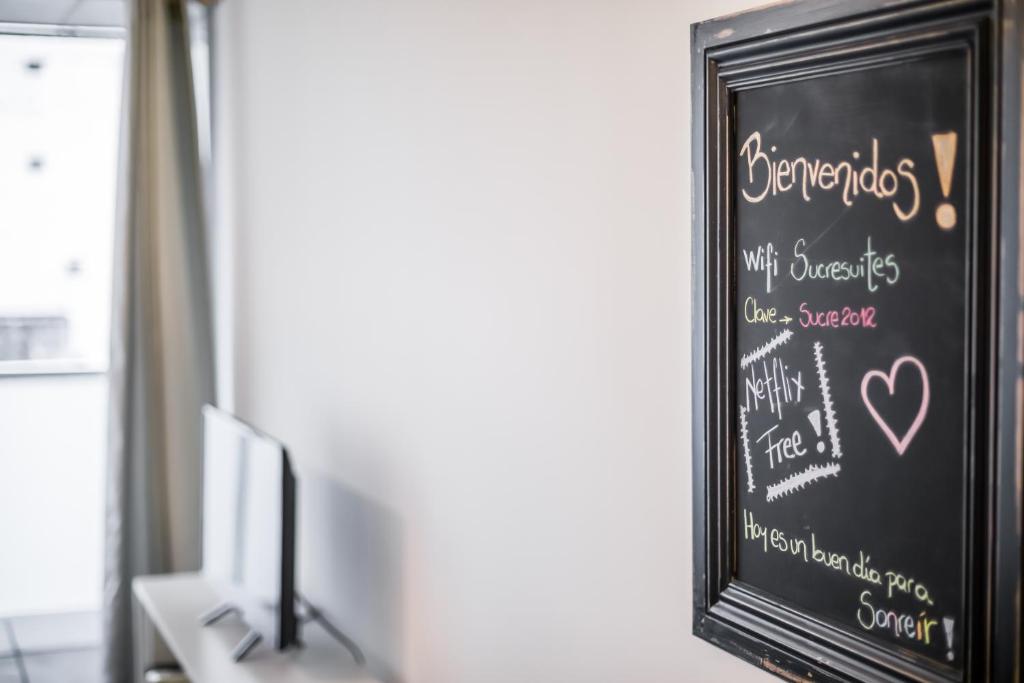 Bienvenidos!
Wifi Sucresuites
Clave → Sucre2012
Netflix
Free!
Hoy es un buen día para
Sonreír!